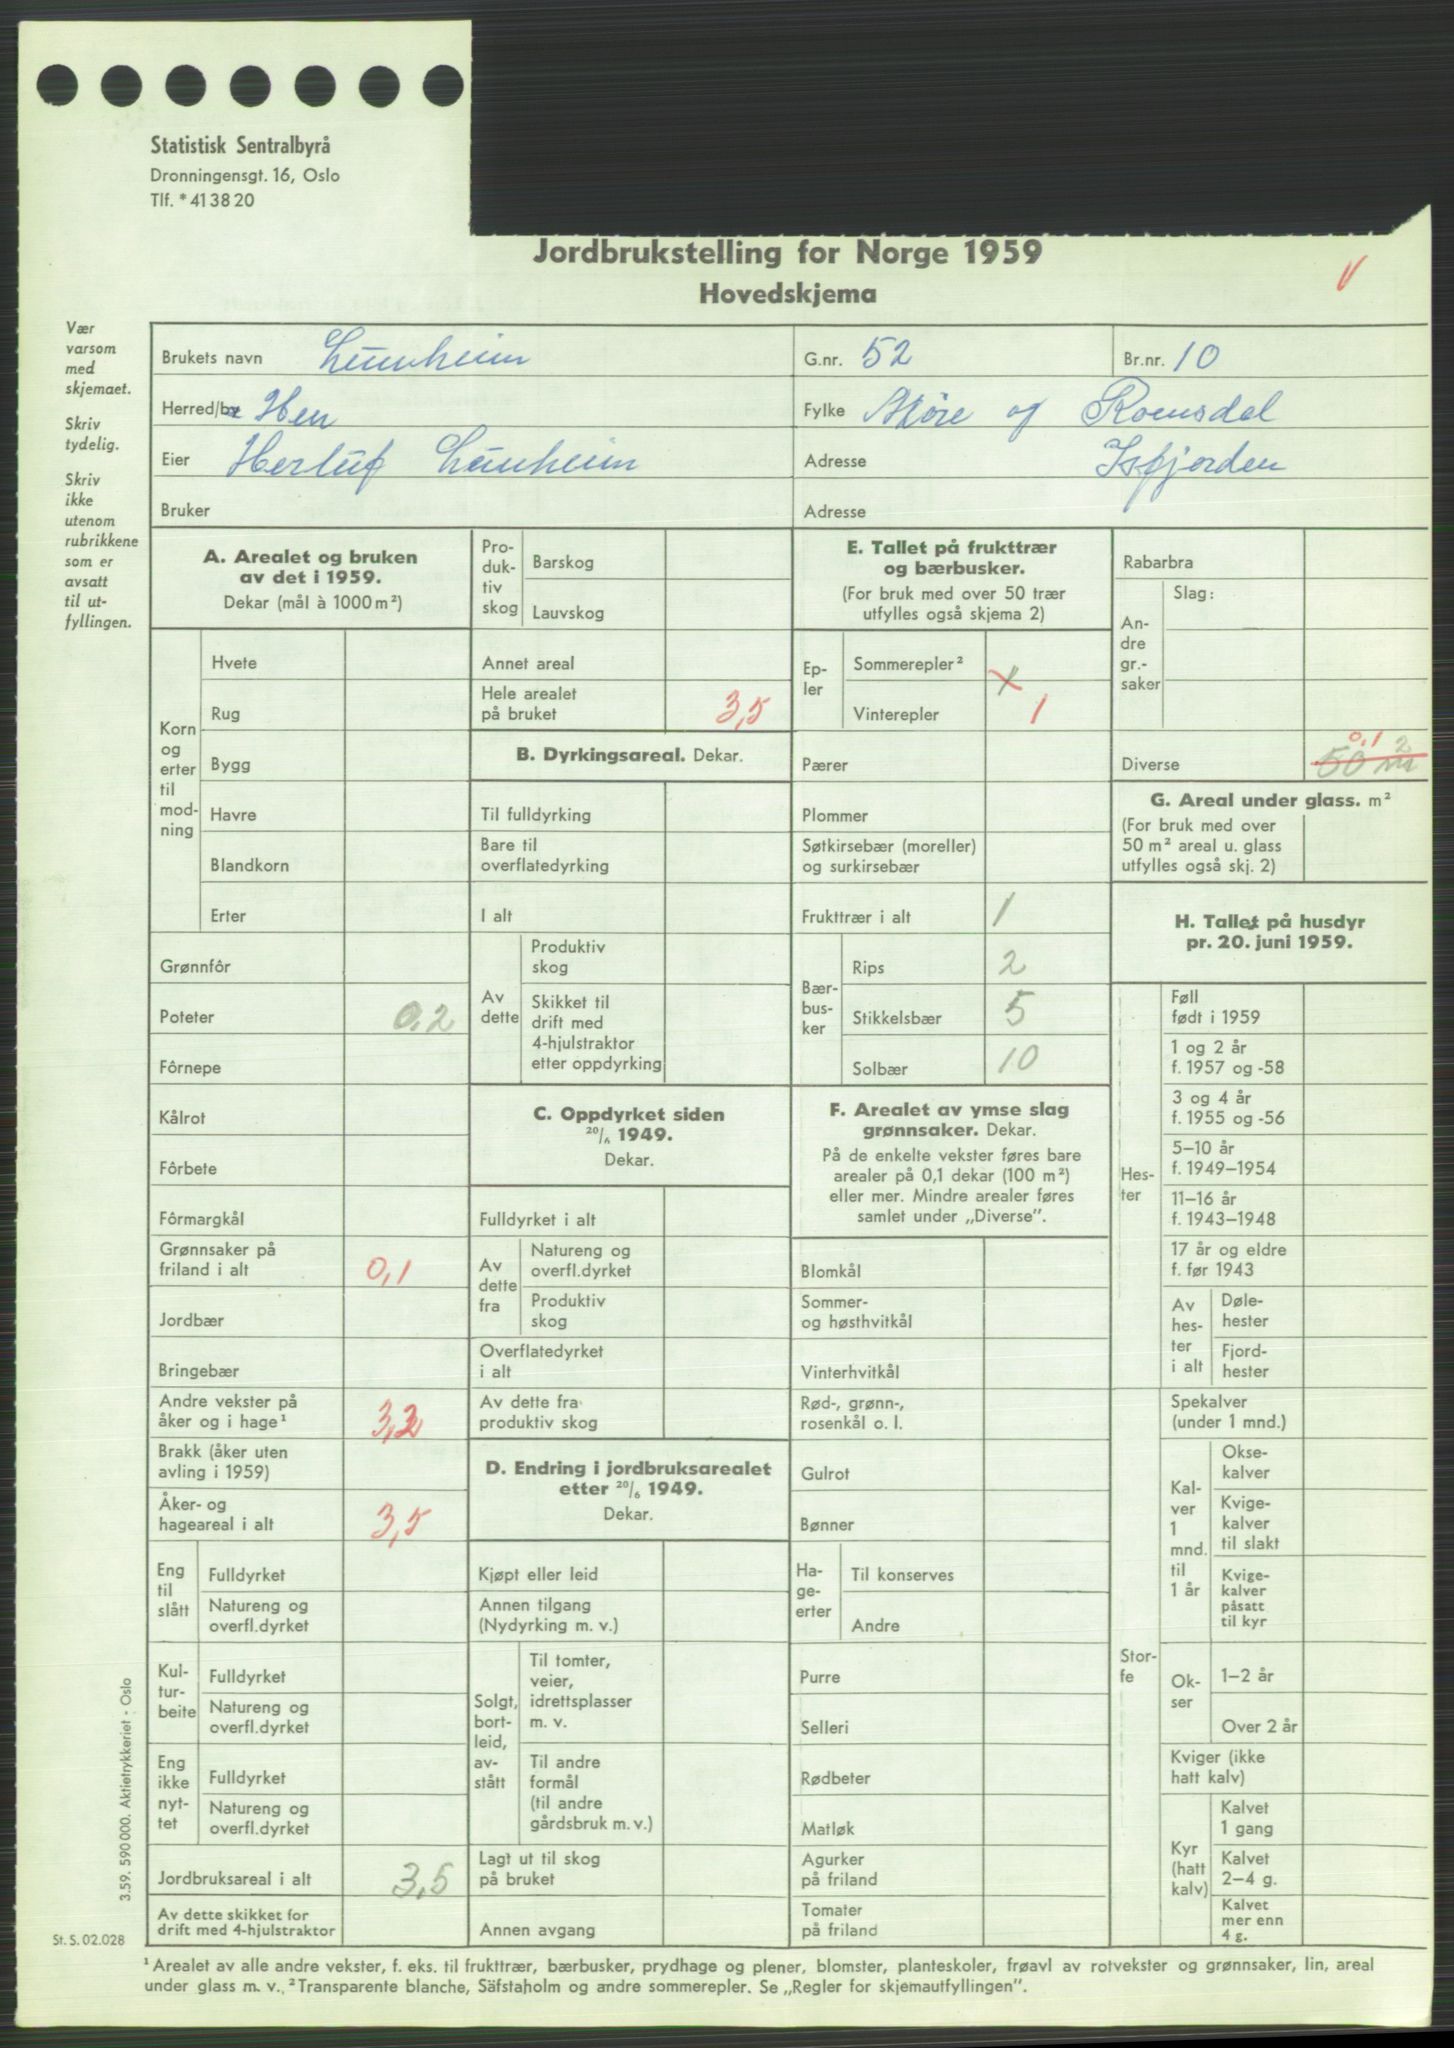 Statistisk Sentralbyrå
Dronningensgt. 16, Oslo
Tlf. * 41 38 20
Jordbrukstelling for Norge 1959
Hovedskjema
V
Vær
varsom
med
skjemaet.
Skriv
tydelig.
Skriv
ikke
utenom
rubrikkene
som er
avsatt
til ut-
fyllingen.
Brukets navn Lunheim G.nr. 52 Br.nr. 10
Herred/by Hen Fylke Møre og Romsdal
Eier Herluf Lunheim Adresse Isfjorden
Bruker Adresse
A. Arealet og bruken
av det i 1959.
Dekar (mål à 1000 m²)
Korn
og
erter
til
mod-
ning
Hvete
Rug
Bygg
Havre
Blandkorn
Erter
Grønnfôr
Poteter 0,2
Fôrnepe
Kålrot
Fôrbete
Fôrmargkål
Grønnsaker på
friland i alt 0,1
Jordbær
Bringebær
Andre vekster på
åker og i hage¹ 3,2
Brakk (åker uten
avling i 1959)
Åker- og
hageareal i alt 3,5
Eng
til
slått
Fulldyrket
Natureng og
overfl.dyrket
Kul-
tur-
beite
Fulldyrket
Natureng og
overfl.dyrket
Eng
ikke
nyt-
tet
Fulldyrket
Natureng og
overfl.dyrket
Jordbruksareal i alt 3,5
Av dette skikket for
drift med 4-hjulstraktor
Pro-
duk-
tiv
skog
Barskog
Lauvskog
Annet areal
Hele arealet
på bruket 3,5
B. Dyrkingsareal. Dekar.
Til fulldyrking
Bare til
overflatedyrking
I alt
Av
dette
Produktiv
skog
Skikket til
drift med
4-hjulstraktor
etter oppdyrking
C. Oppdyrket siden
20/6 1949.
Dekar.
Fulldyrket i alt
Av
dette
fra
Natureng og
overfl.dyrket
Produktiv
skog
Overflatedyrket
i alt
Av dette fra
produktiv skog
D. Endring i jordbruksarealet
etter 20/6 1949.
Dekar.
Kjøpt eller leid
Annen tilgang
(Nydyrking m. v.)
Solgt,
bort-
leid,
av-
stått
Til tomter,
veier,
idrettsplasser
m. v.
Til andre
formål
(til andre
gårdsbruk m. v.)
Lagt ut til skog
på bruket
Annen avgang
E. Tallet på frukttrær
og bærbusker.
(For bruk med over 50 trær
utfylles også skjema 2)
Ep-
ler
Sommerepler²
Vinterepler 1
Pærer
Plommer
Søtkirsebær (moreller)
og surkirsebær
Frukttrær i alt 1
Bær-
bus-
ker
Rips 2
Stikkelsbær 5
Solbær 10
F. Arealet av ymse slag
grønnsaker. Dekar.
På de enkelte vekster føres bare
arealer på 0,1 dekar (100 m²)
eller mer. Mindre arealer føres
samlet under „Diverse”.
Blomkål
Sommer-
og høsthvitkål
Vinterhvitkål
Rød-, grønn-,
rosenkål o. l.
Gulrot
Bønner
Ha-
ge-
erter
Til konserves
Andre
Purre
Selleri
Rødbeter
Matløk
Agurker
på friland
Tomater
på friland
Rabarbra
An-
dre
gr.-
saker
Slag:
0,1
Diverse 50 m²
G. Areal under glass. m²
(For bruk med over
50 m² areal u. glass
utfylles også skj. 2)
H. Tallet på husdyr
pr. 20. juni 1959.
Hes-
ter
Føll
født i 1959
1 og 2 år
f. 1957 og -58
3 og 4 år
f. 1955 og -56
5–10 år
f. 1949–1954
11–16 år
f. 1943–1948
17 år og eldre
f. før 1943
Av
hes-
ter
i alt
Døle-
hester
Fjord-
hester
Stor-
fe
Spekalver
(under 1 mnd.)
Kal-
ver
1
mnd.
til
1 år
Okse-
kalver
Kvige-
kalver
til slakt
Kvige-
kalver
påsatt
til kyr
Ok-
ser
1–2 år
Over 2 år
Kviger (ikke
hatt kalv)
Kyr
(hatt
kalv)
Kalvet
1 gang
Kalvet
2–4 g.
Kalvet
mer enn
4 g.
3.59. 590 000. Aktietrykkeriet - Oslo
St. S. 02.028
¹ Arealet av alle andre vekster, f. eks. til frukttrær, bærbusker, prydhage og plener, blomster, planteskoler, frøavl av rotvekster og grønnsaker, lin, areal
under glass m. v., ² Transparente blanche, Säfstaholm og andre sommerepler. Se „Regler for skjemautfyllingen”.